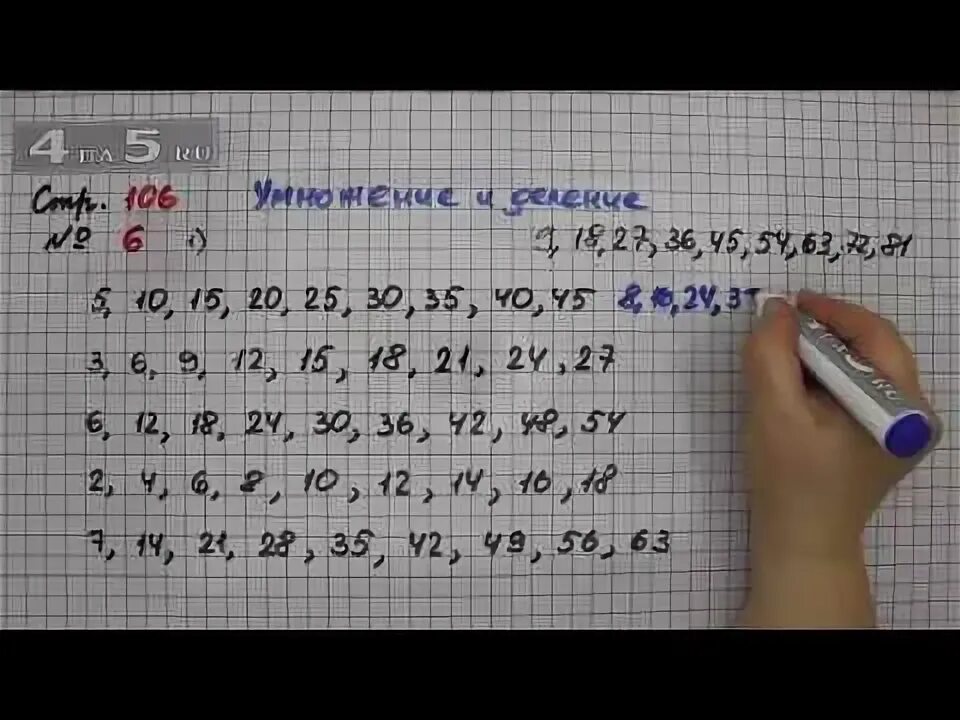 4 па 5 RU
Стр. 106 Умножение и деление
№ 6 1) 9, 18, 27, 36, 45, 54, 63, 72, 81
5, 10, 15, 20, 25, 30, 35, 40, 45 8, 16, 24, 3
3, 6, 9, 12, 15, 18, 21, 24, 27
6, 12, 18, 24, 30, 36, 42, 48, 54
2, 4, 6, 8, 10, 12, 14, 16, 18
7, 14, 21, 28, 35, 42, 49, 56, 63